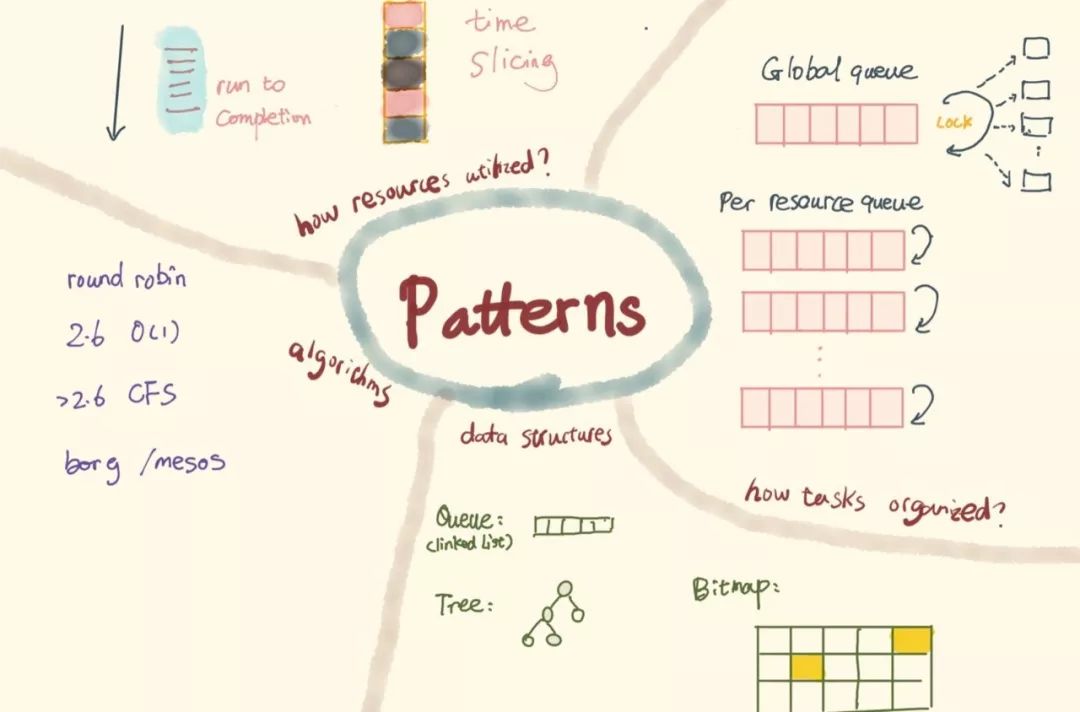 time
slicing
run to
completion
Global queue
LOCK
how resources utilized?
Per resource queue
Patterns
round robin
2.6 O(1)
>2.6 CFS
borg /mesos
algorithms
data structures
how tasks organized?
Queue:
(linked list)
Tree:
Bitmap: